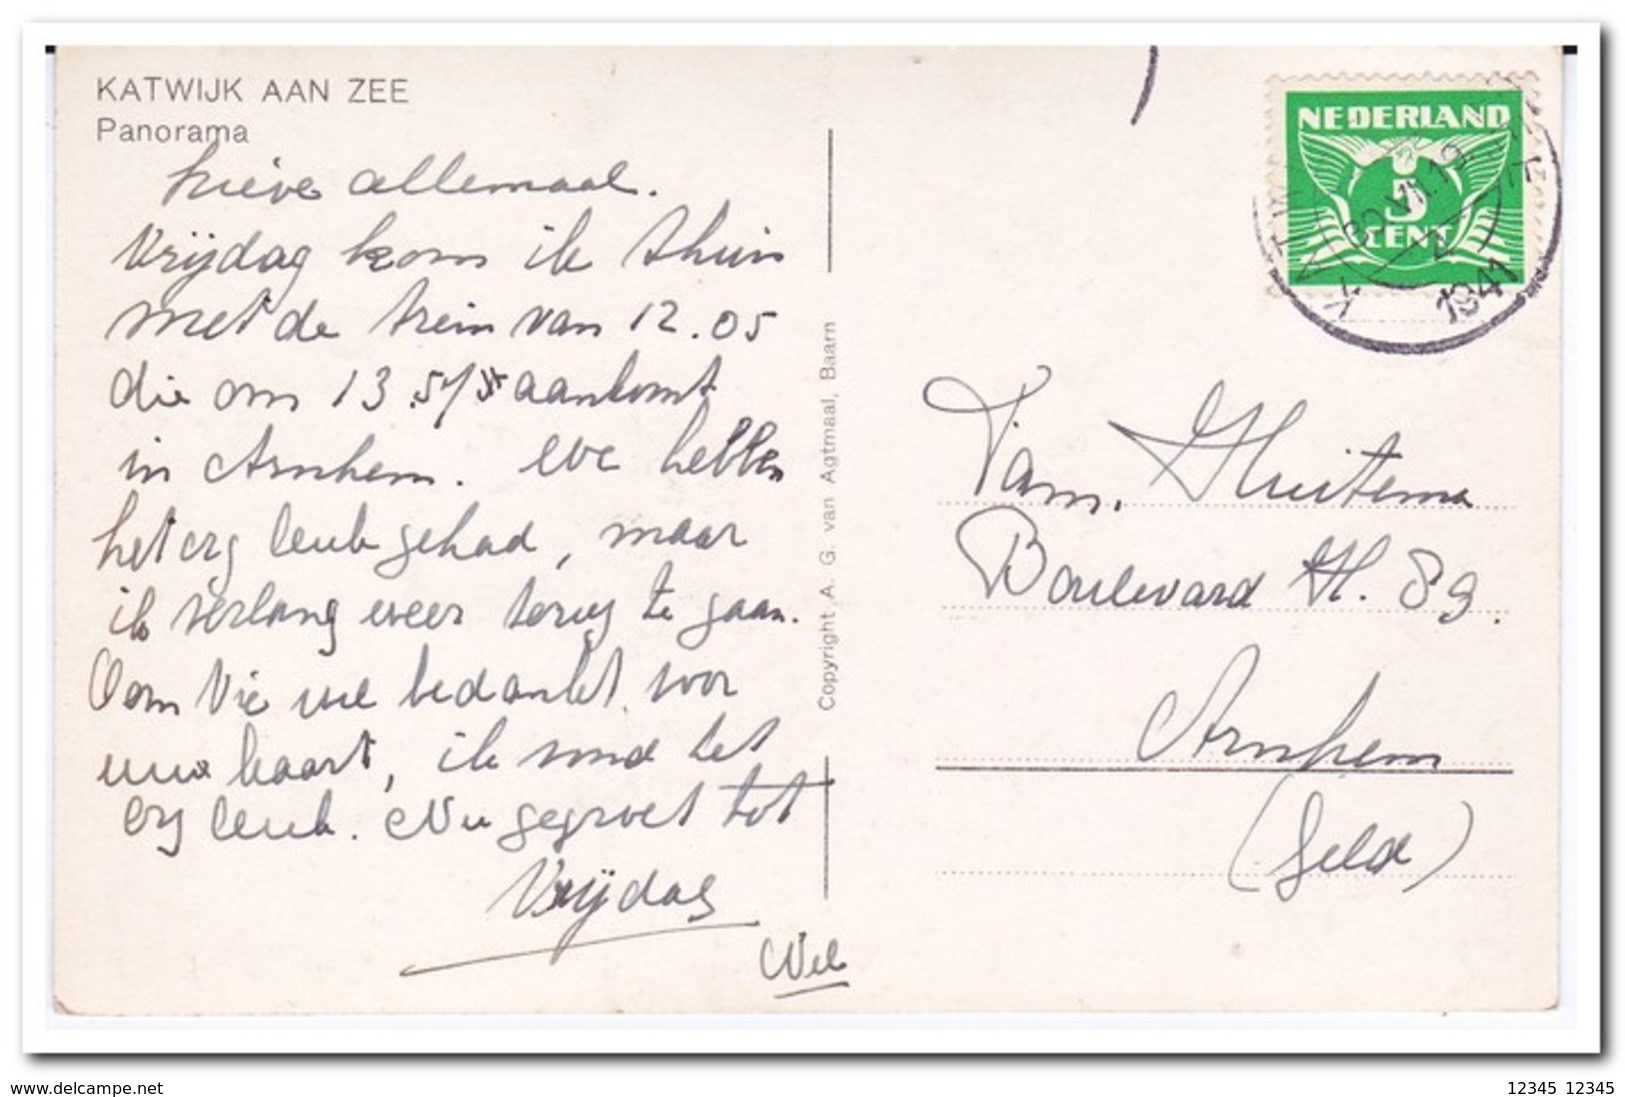 KATWIJK AAN ZEE
Panorama
Lieve allemaal.
Vrijdag kom ik thuis
met de trein van 12.05
die om 13.5 aankomt
in Arnhem. We hebben
het erg leuk gehad, maar
ik verlang weer terug te gaan.
Oom Vic wel bedankt voor
uw kaart, ik vond het
erg leuk. Nu gegroet tot
Vrijdag
Wil
Copyright A. G. van Agtmaal, Baarn
NEDERLAND
5
CENT
KATWIJK
1941
Fam. Huitema
Boulevard H. 89.
Arnhem
(Geld)
www.delcampe.net
12345 12345